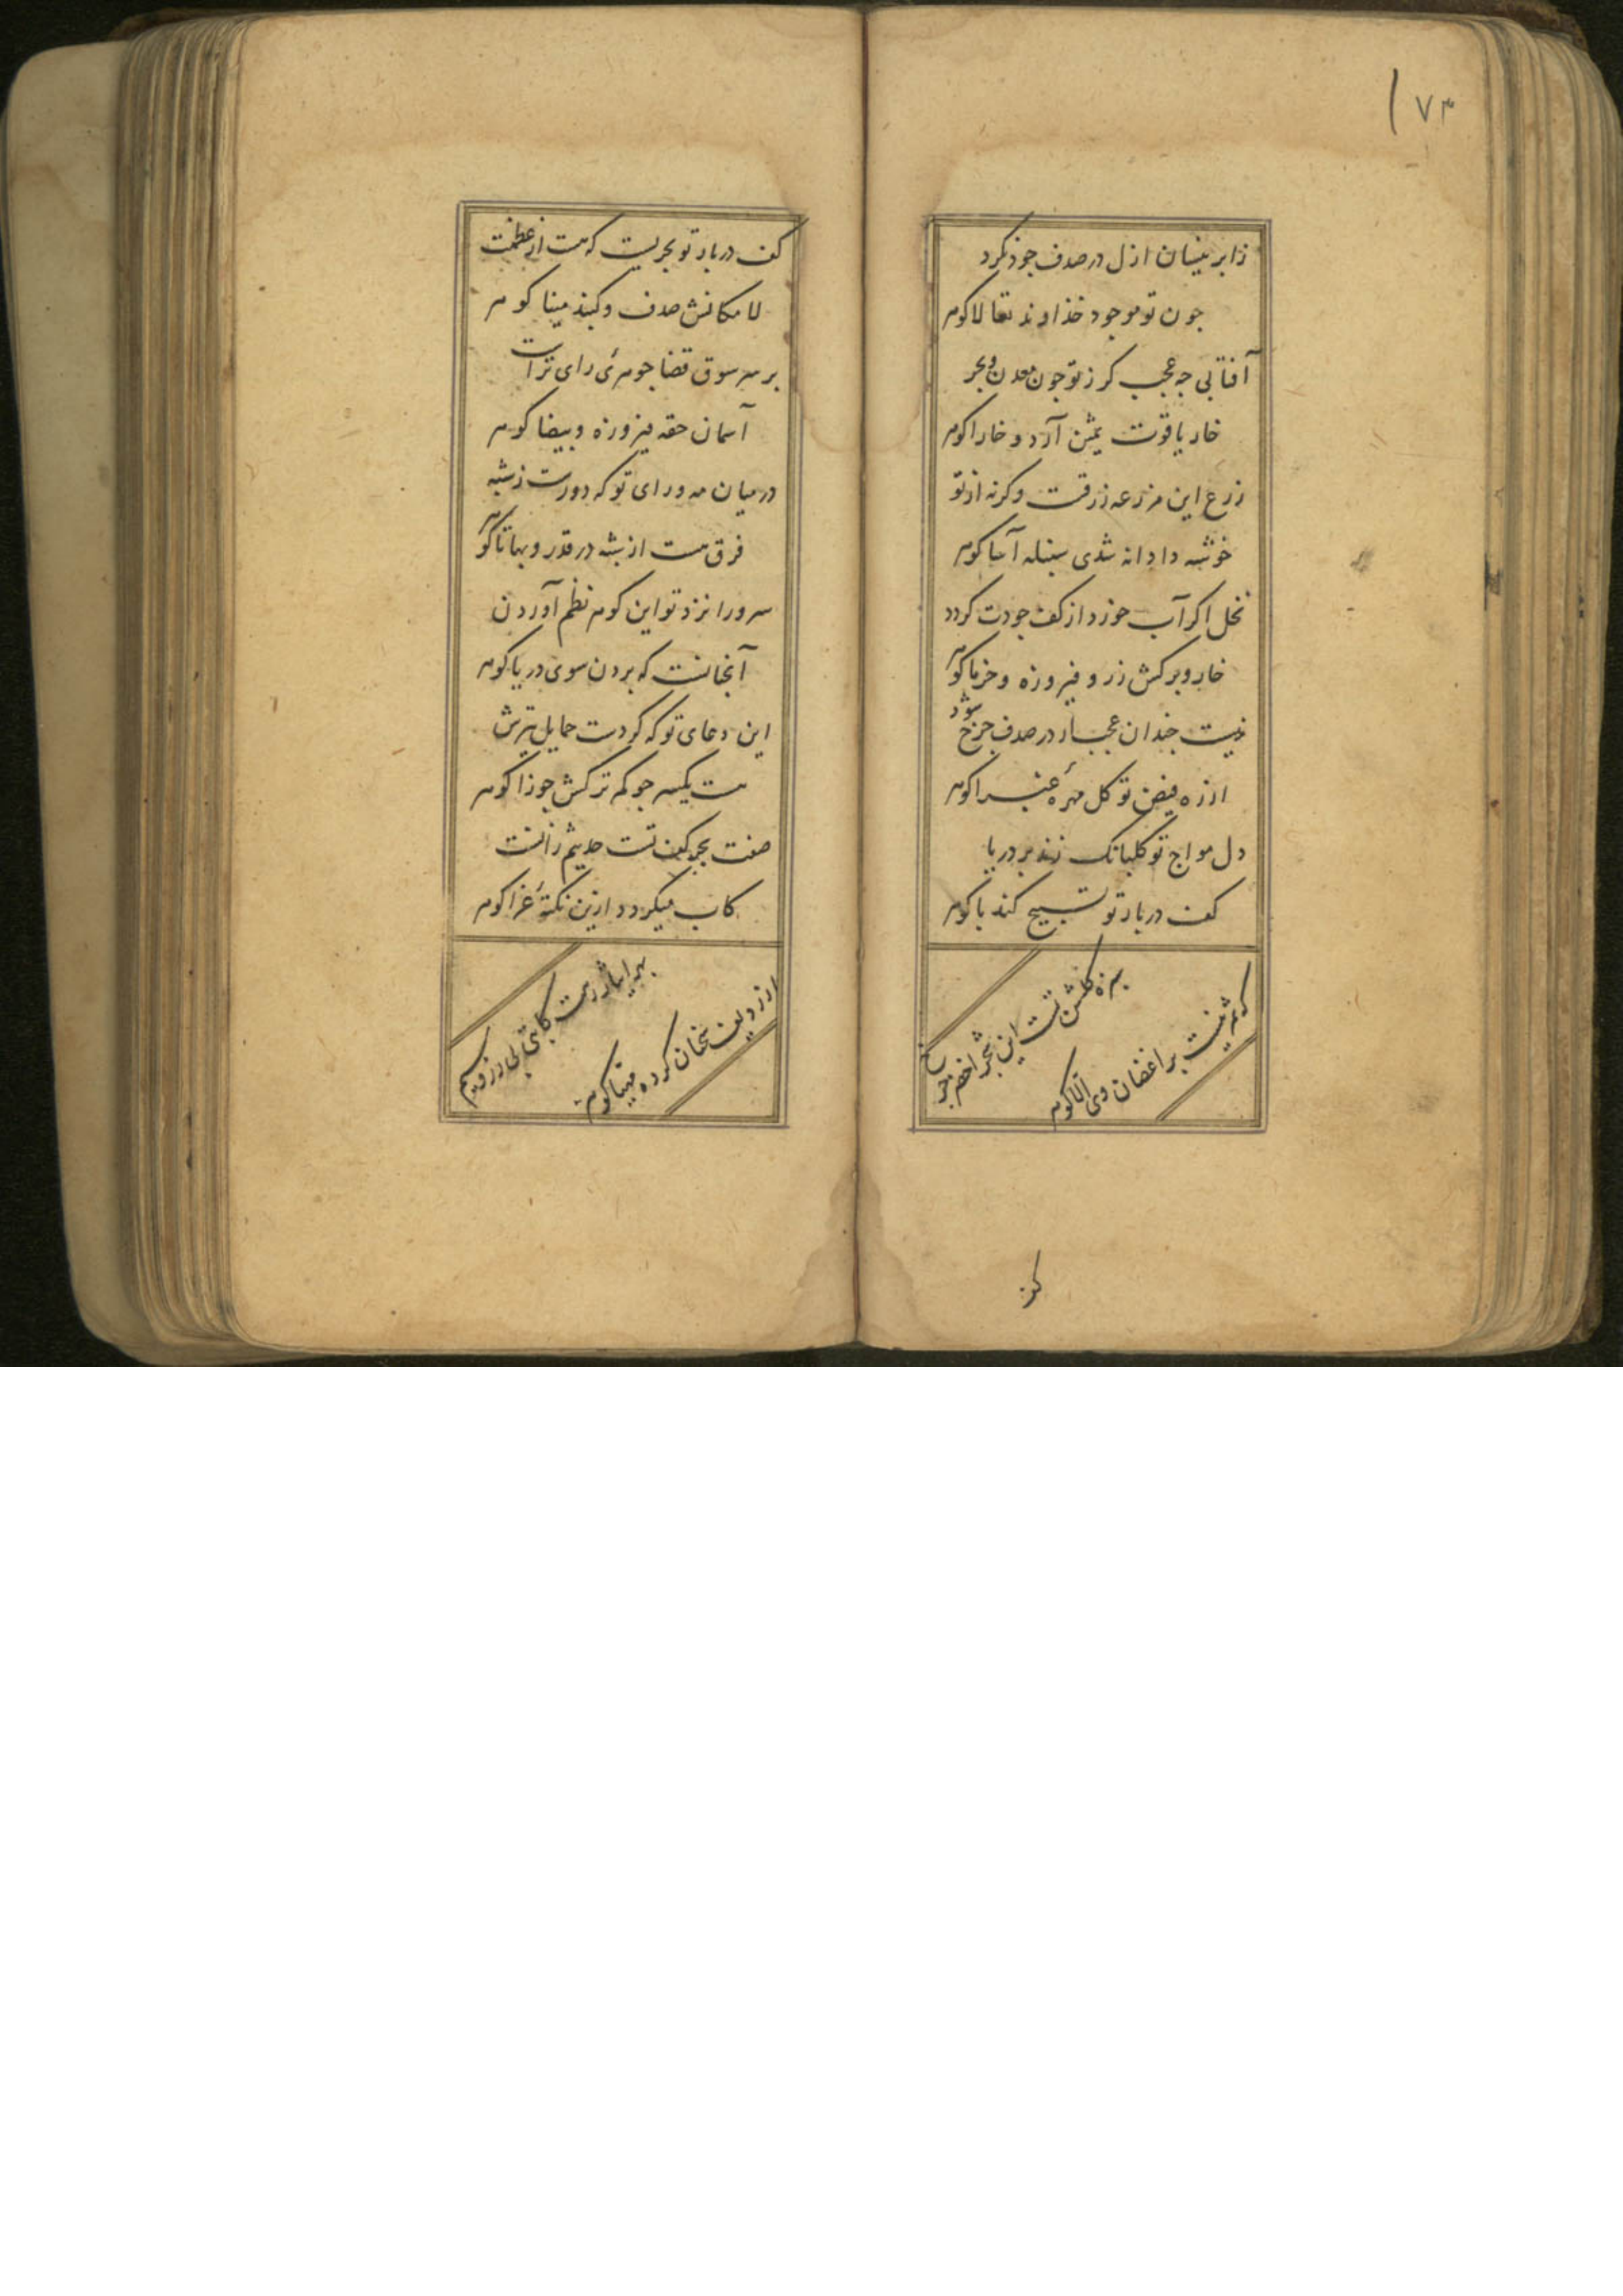 ۱۷۳
ز ابر نیسان ازل در صدف جود نکرد
جون تو موجود خداوند تعالا کوهر
آفتابی جه عجب کر ز تو جون معدن و بحر
خار یاقوت ثمین آرد و خارا کوهر
زرع این مزرعه زرقست وکرنه از تو
خوشه دادانه شدی سنبله آسا کوهر
نخل اکر آب خورد از کف جودت کردد
خار و برکش زر و فیروزه و خرما کوهر
نیست جندان عجب ار در صدف جرخ شود
از ره فیض تو کل مهرهٔ عنبرا کوهر
دل مواج تو کلبانک زند بر دریا
کف دربار تو تسبیح کند با کوهر
سبزه کلشن تست این شجر اخضر جرخ
که ثمر نیست بر اغصان وی الا کوهر
کف
کف دربار تو بحریست که هست از عظمت
لامکانش صدف و کنبد مینا کوهر
بر سر سوق قضا جوهرئ رای تراست
آسمان حقه فیروزه و بیضا کوهر
در میان مه و رای تو که دورست ز شبه
فرق هست از شبه در قدر و بها تا کوهر
سرورا نزد تو این کوهر نظم آوردن
آنجنانست که بردن سوی دریا کوهر
این دعای تو که کردست حمایل تیرش
هست یکسر جو کمر ترکش جوزا کوهر
صفت بحر کف تست حدیثم زانست
کاب میکردد ازین نکتهٔ غرا کوهر
بهر ایثار رهت کاتبی بی زر و سیم
از ردیف سخنان کرده مهیا کوهر